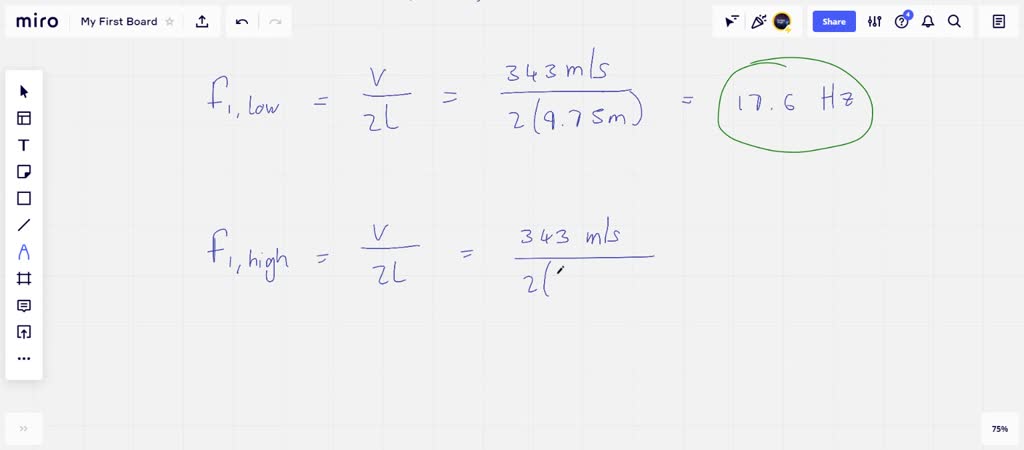 miro My First Board Share 4
f1, low = v / 2L = 343 m/s / 2(9.75m) = 17.6 Hz
f1, high = v / 2L = 343 m/s / 2(
75%